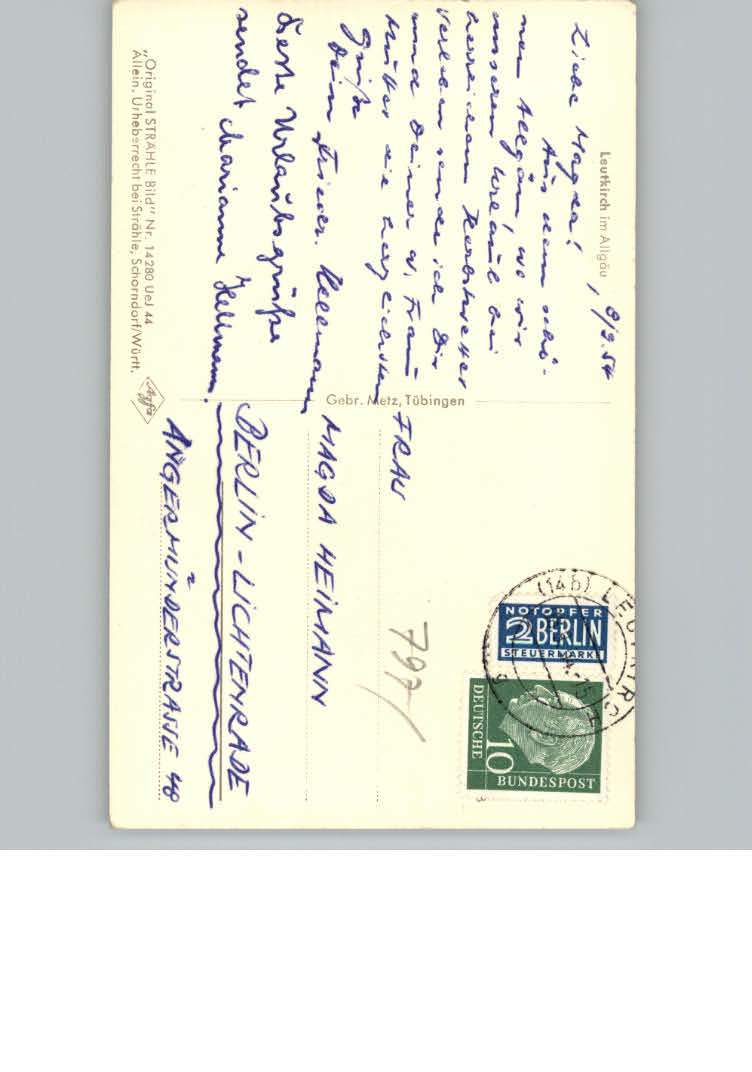 Leutkirch im Allgäu
, 8/9.54
Liebe Magda!
Aus dem schö-
nen Allgäu, wo wir
unseren Urlaub bei
herrlichem Herbstwetter
verleben sende ich Dir
und Deiner w. Frau
Mutter die herzlichsten
Grüße
Dein Hellmann
Beste Urlaubsgrüße
sendet Marianne Hellmann.
"Original STRÄHLE Bild" Nr. 14280 UeJ 44
Allein. Urheberrecht bei Strähle, Schorndorf/Württ.
Agfa
Gebr. Metz, Tübingen
FRAU
MAGDA HEIMANN
BERLIN-LICHTENRADE
ANGERMÜNDERSTRASSE 48
797/
(14b) LEUTKIRCH
NOTOPFER
2 BERLIN
STEUERMARKE
DEUTSCHE
10
BUNDESPOST